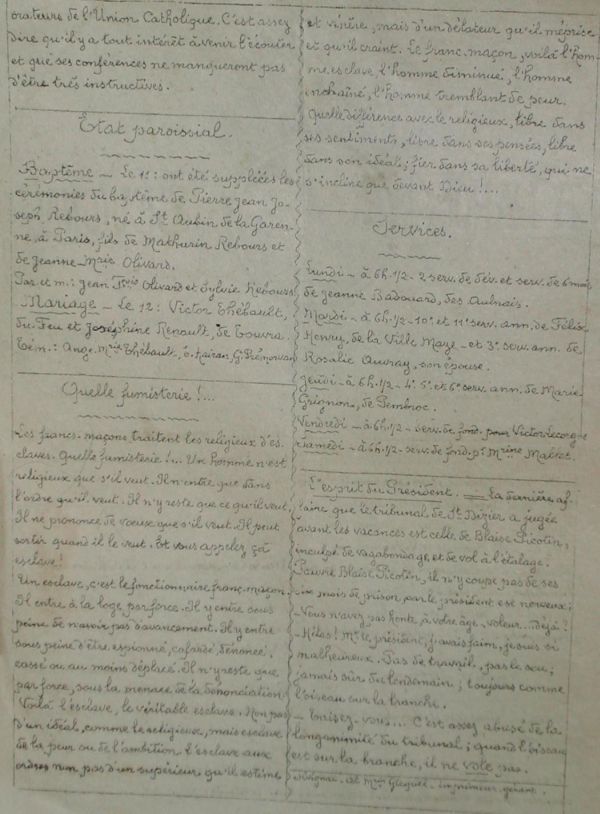 orateurs de l'Union Catholique. C'est assez
dire qu'il y a tout intérêt à venir l'écouter
et que ses conférences ne manqueront pas
d'être très instructives.
Etat paroissial.
Baptême — Le 11 : ont été suppléées les
cérémonies du baptême de Pierre Jean Jo-
seph Rebours, né à St Aubin de la Garen-
ne, à Paris, fils de Mathurin Rebours et
de Jeanne-Marie Olivard.
Par. et m. : Jean Olivard et Sylvie Rebours
Mariage — Le 12 : Victor Thébault,
du Feu et Joséphine Renoult, de Couvra.
Tém. : Ange Mie Thébault, G. Prémorvan
Quelle fumisterie !...
Les francs-maçons traitent les religieux d'es-
claves. Quelle fumisterie !... Un homme n'est
religieux que s'il veut. Il n'entre que dans
l'ordre qu'il veut. Il n'y reste que ce qu'il veut.
Il ne prononce de vœux que s'il veut. Il peut
sortir quand il le veut. Et vous appelez ça
esclave !
Un esclave, c'est le fonctionnaire franc-maçon.
Il entre à la loge par force. Il y entre sous
peine de n'avoir pas d'avancement. Il y entre
sous peine d'être espionné, cafardé, dénoncé,
cassé ou au moins déplacé. Il n'y reste que
par force, sous la menace de la dénonciation.
Voilà l'esclave, le véritable esclave. Non pas
d'un idéal, comme le religieux, mais esclave
de la peur ou de l'ambition. L'esclave aux
ordres non pas d'un supérieur qu'il estime
et vénère, mais d'un délateur qu'il méprise
et qu'il craint. Le franc-maçon, voilà l'hom-
me esclave, l'homme diminué, l'homme
enchaîné, l'homme tremblant de peur.
Quelle différence avec le religieux, libre dans
ses sentiments, libre dans ses pensées, libre
dans son idéal ; fier dans sa liberté, qui ne
s'incline que devant Dieu !...
Services.
Lundi — à 6h.1/2 - 2 serv. de dév. et serv. de 6 mois
de Jeanne Badouard, des Aulnais.
Mardi — à 6h.1/2 - 10e et 11e serv. ann. de Félix
Henry, de la Ville Maye - et 3e serv. ann. de
Rosalie Auvray, son épouse.
Jeudi — à 6h.1/2 - 4e 5e et 6e serv. ann. de Marie
Grignon, de Pembroc.
Vendredi — à 6h.1/2 - serv. de fond. pour Victor Lecorgne
Samedi — à 6h.1/2 - serv. de fond. pr Mme
L'esprit du Président. — La dernière af-
faire que le tribunal de St Dizier a jugée
avant les vacances est celle de Blaise Picotin,
inculpé de vagabondage et de vol à l'étalage.
Pauvre Blaise Picotin, il n'y coupe pas de ses
six mois de prison, car le président est nerveux ;
— Vous n'avez pas honte, à votre âge, voleur... déjà ?
— Hélas ! Mr le président, j'avais faim, je suis si
malheureux. Pas de travail, pas le sou ;
jamais sûr du lendemain ; toujours comme
l'oiseau sur la branche.
— Taisez-vous... C'est assez abusé de la
longanimité du tribunal ; quand l'oiseau
est sur la branche, il ne vole pas.
imprimeur gérant.